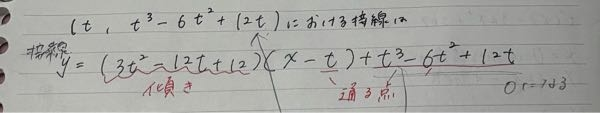 (t, t³-6t²+12t)における接線は
接線
y=(3t²-12t+12)(x-t)+t³-6t²+12t
傾き 通る点